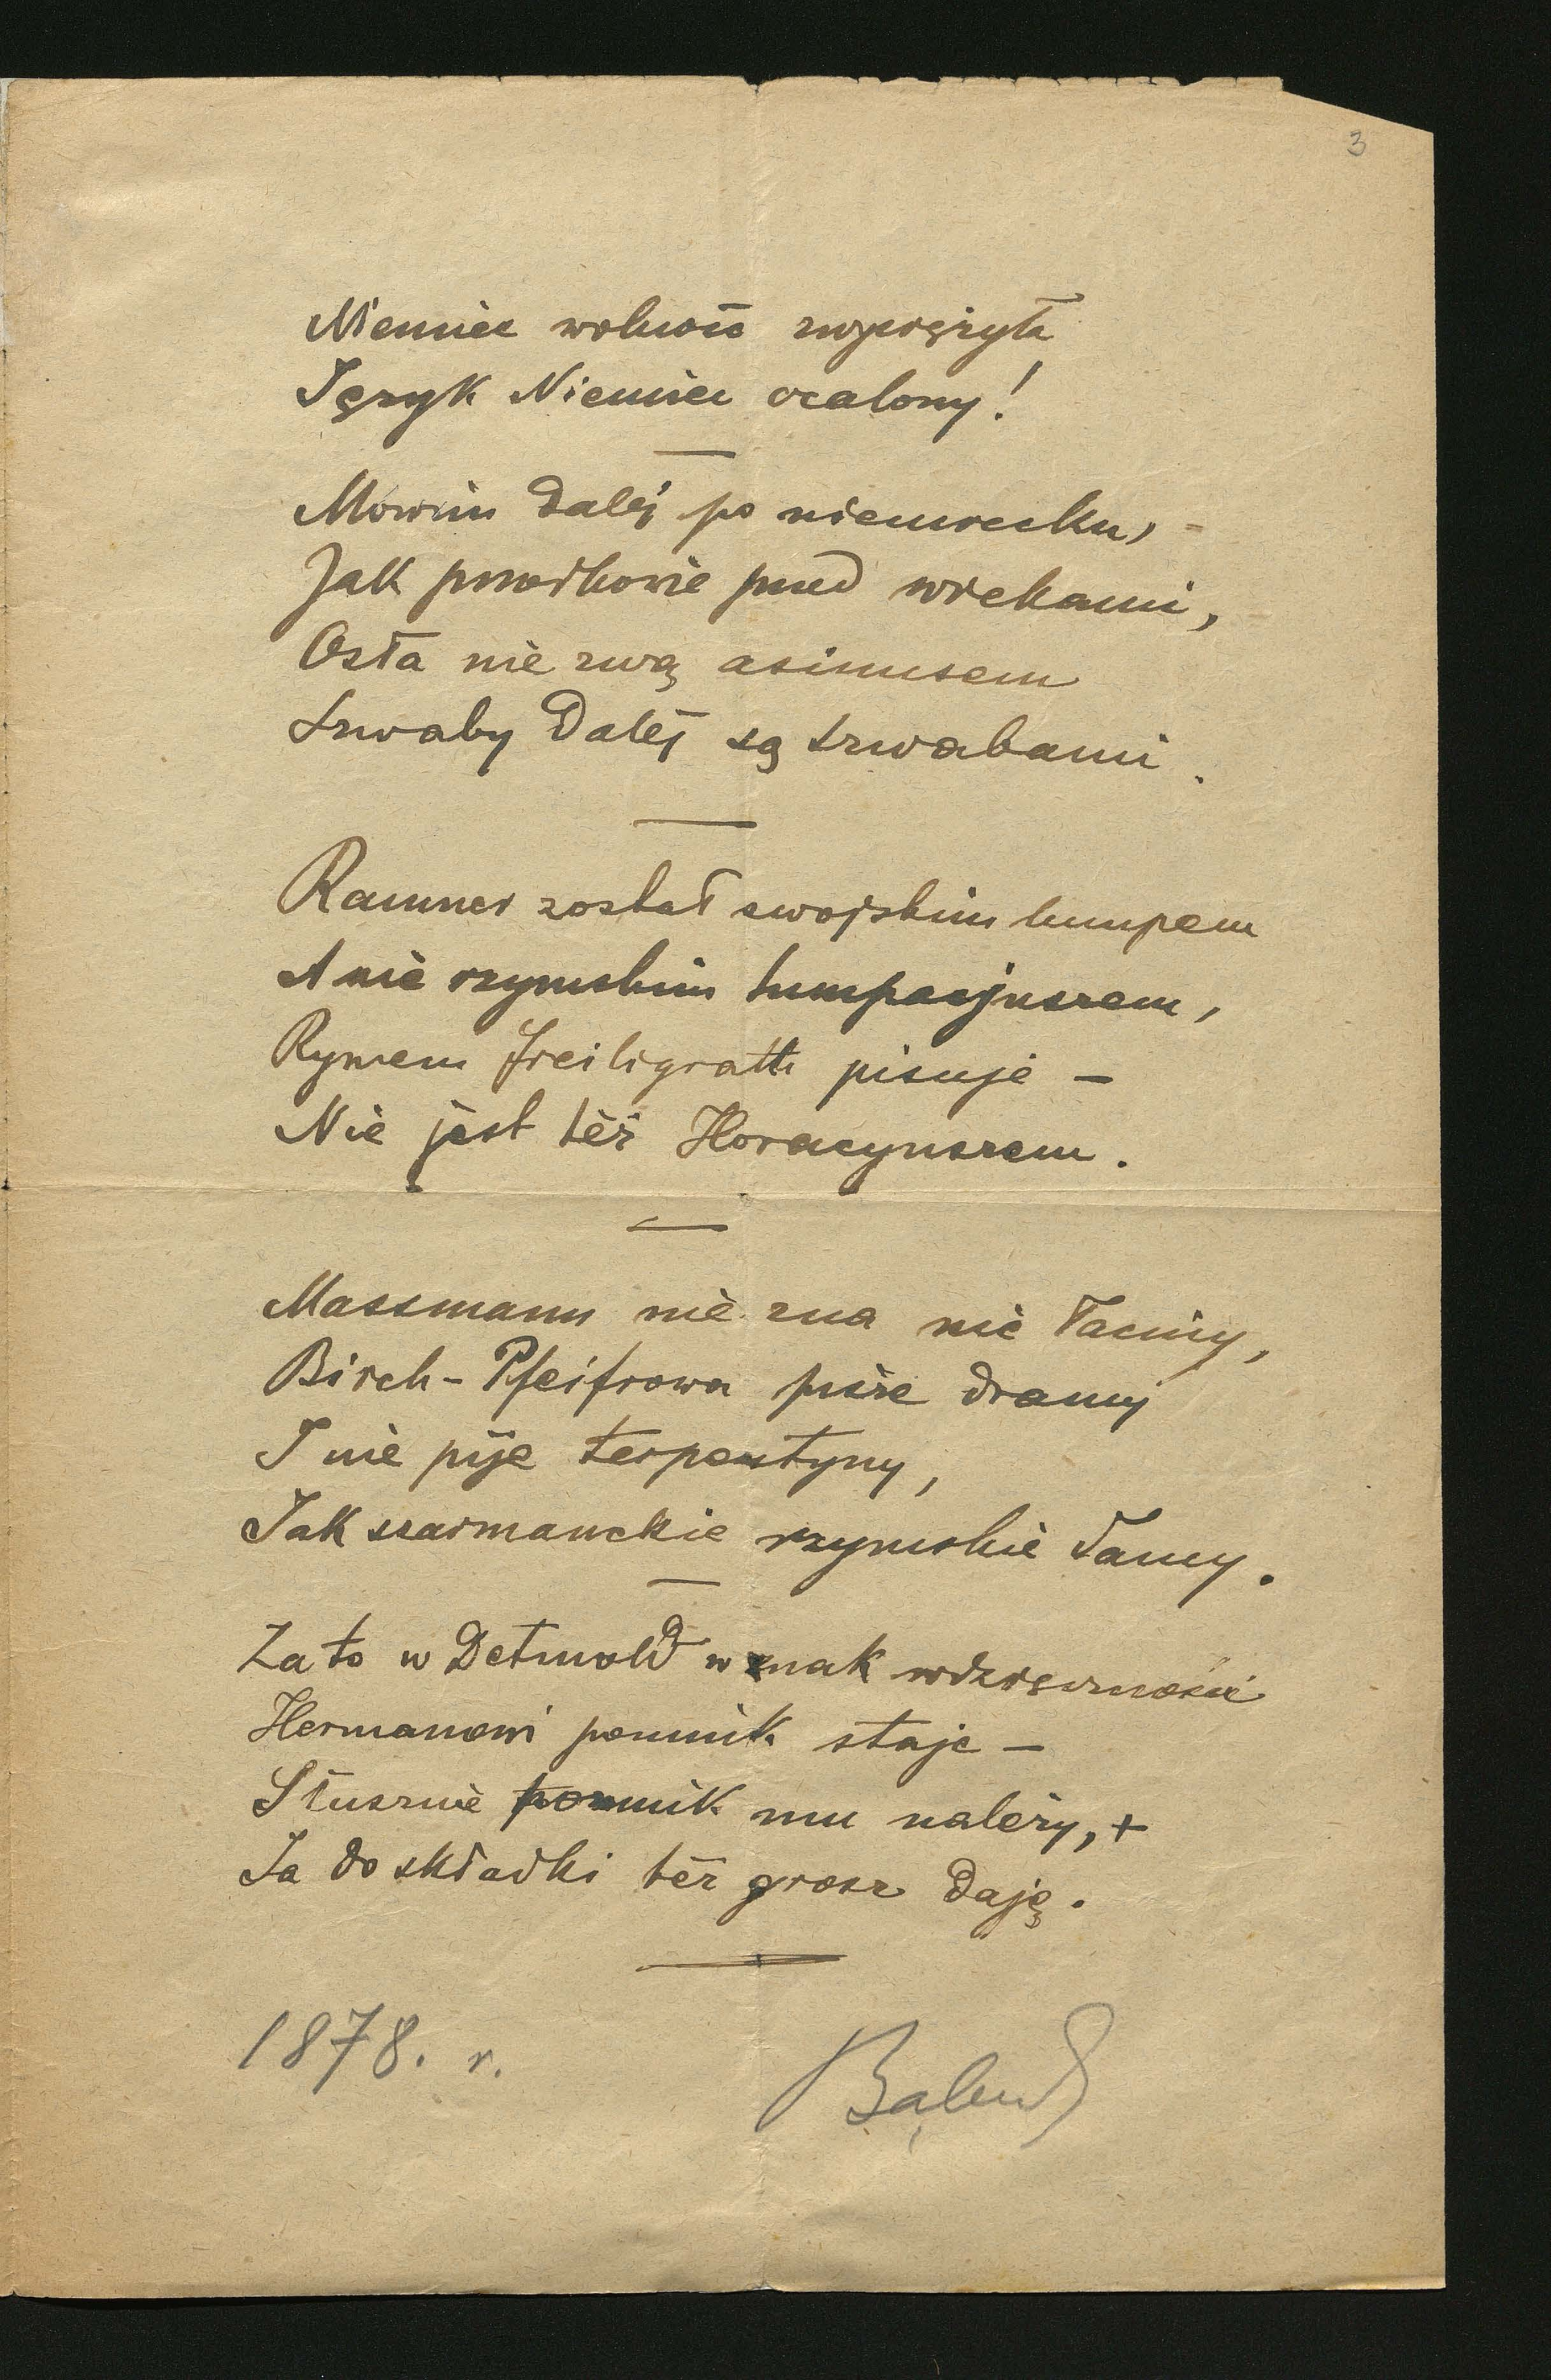 3
Niemiec wolność zwyciężyła
Język Niemiec ocalony!
Mówim daléj po niemiecku,
Jak przodkowie przed wiekami,
Osła nie zwą asinusem
Szwaby daléj są szwabami.
Raumer został swojskim lumpem
A nie rzymskim lumpacjuszem,
Rymem Freiligrath pisuje –
Nie jest téż Horacyuszem.
Massmann nie zna nic łaciny,
Birch-Pfeifrowa pisze dramy
I nie pije terpentyny,
Jak szarmanckie rzymskie damy.
Za to w Detmold w znak wdzięczności
Hermanowi pomnik staje –
Słusznie pomnik mu należy, +
Ja do składki téż grosz daję.
1878. r.